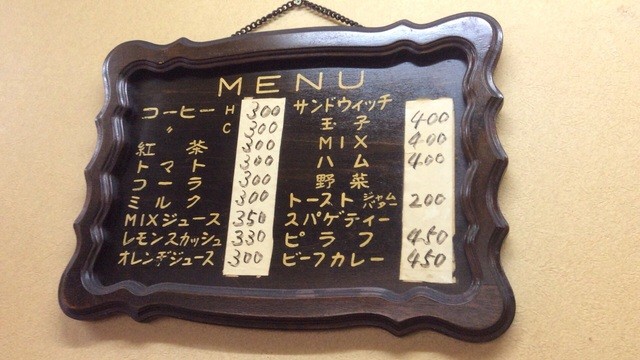 MENU
コーヒー H 300
〃 C 300
紅茶 300
トマト 300
コーラ 300
ミルク 300
MIXジュース 350
レモンスカッシュ 330
オレンヂジュース 300
サンドウィッチ
玉子 400
MIX 400
ハム 400
野菜
トースト ジャム バター 200
スパゲティー
ピラフ 450
ビーフカレー 450